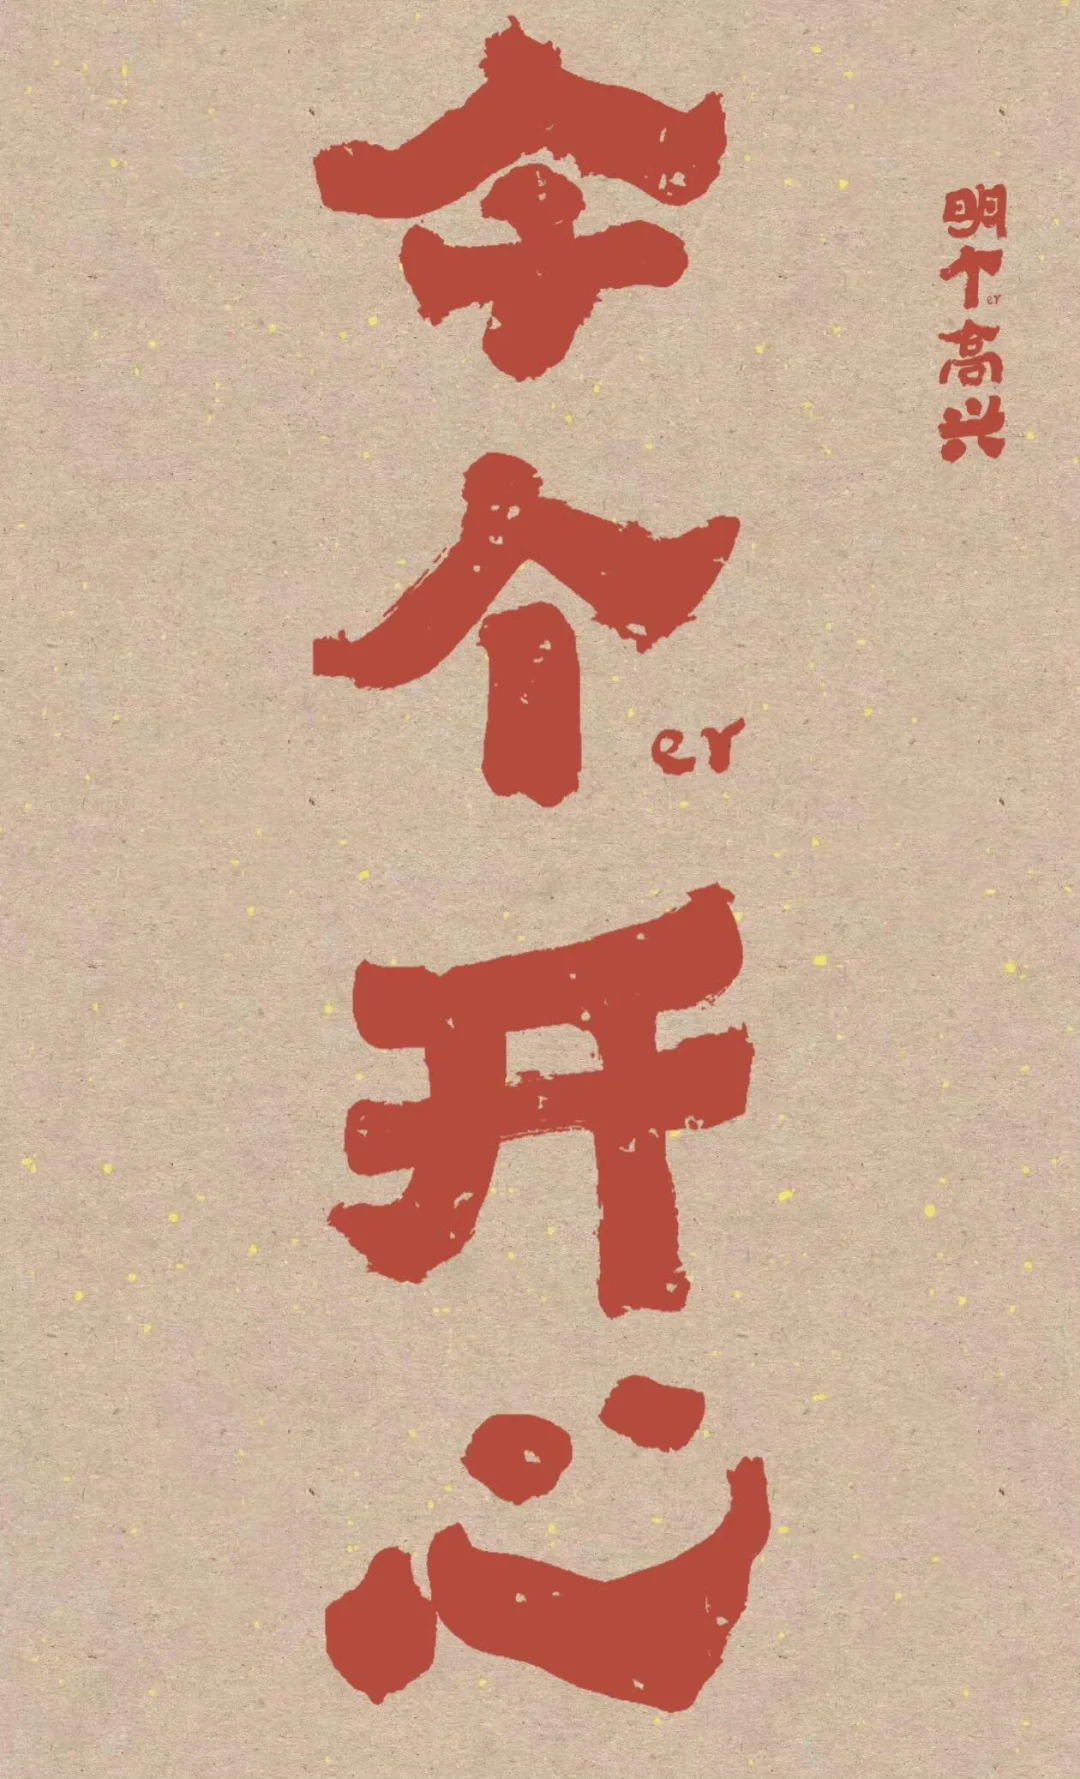 今个er开心
明个er高兴